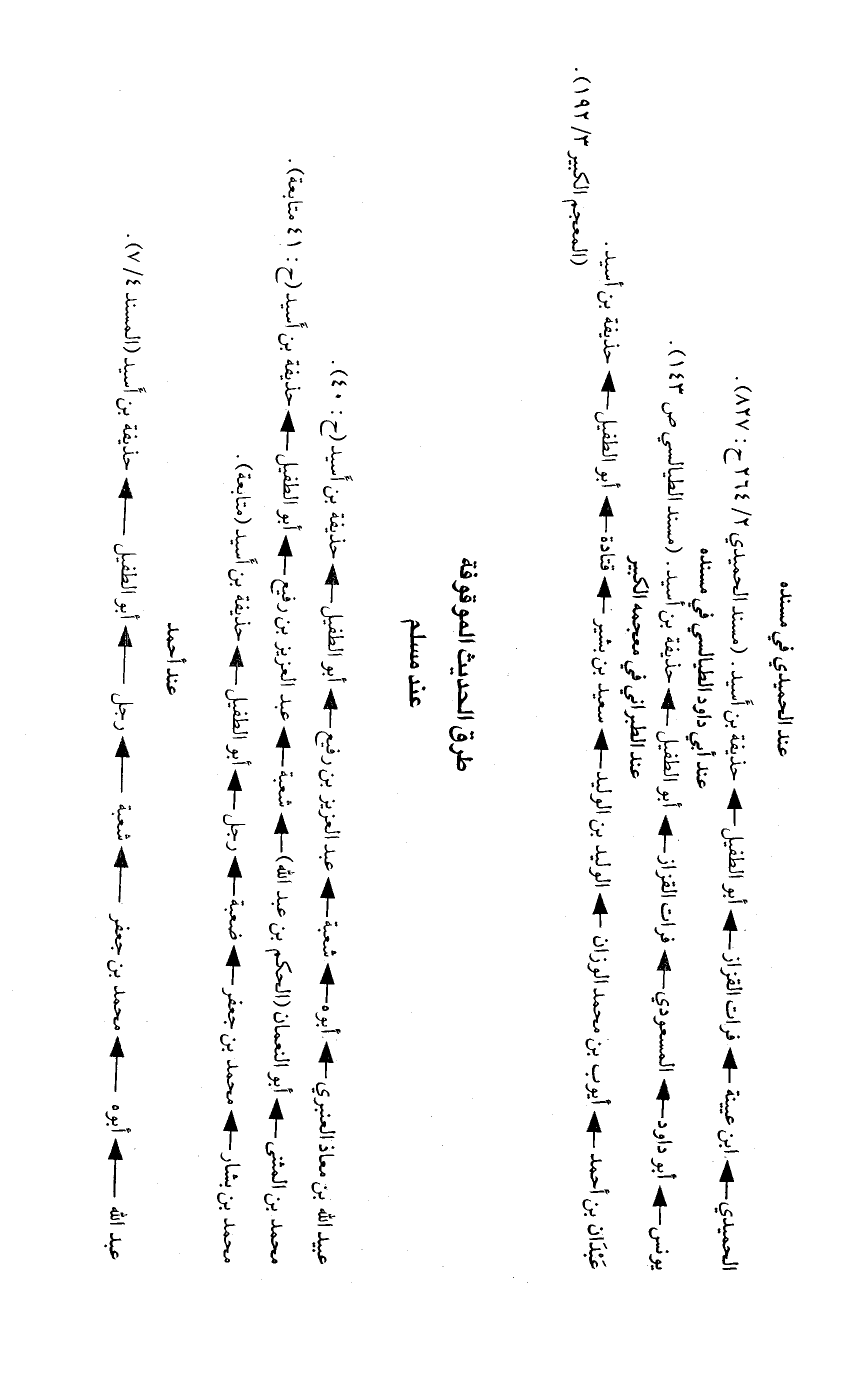 عند الحميدي في مسنده
الحميدي ← ابن عيينة ← فرات القزاز ← أبو الطفيل ← حذيفة بن أسيد. (مسند الحميدي ٢/ ٣٦٤ ح: ٨٢٧).
عند أبي داود الطيالسي في مسنده
يونس ← أبو داود ← المسعودي ← فرات القزاز ← أبو الطفيل ← حذيفة بن أسيد. (مسند الطيالسي ص ١٤٣).
عند الطبراني في معجمه الكبير
عَبْدَان بن أحمد ← أيوب بن محمد الوزان ← الوليد بن الوليد ← سعيد بن بشير ← قتادة ← أبو الطفيل ← حذيفة بن أسيد.
(المعجم الكبير ٣/ ١٩٢).
طرق الحديث الموقوفة
عند مسلم
عبيد الله بن معاذ العنبري ← أبوه ← شعبة ← عبد العزيز بن رفيع ← أبو الطفيل ← حذيفة بن أسيد (ح: ٤٠).
محمد بن المثنى ← أبو النعمان (الحكم بن عبد الله) ← شعبة ← عبد العزيز بن رفيع ← أبو الطفيل ← حذيفة بن أسيد (ح: ٤١ متابعة).
محمد بن بشار ← محمد بن جعفر ← ضعبة ← رجل ← أبو الطفيل ← حذيفة بن أسيد (متابعة).
عند أحمد
عبد الله ← أبوه ← محمد بن جعفر ← شعبة ← رجل ← أبو الطفيل ← حذيفة بن أسيد (المسند ٤/ ٧).